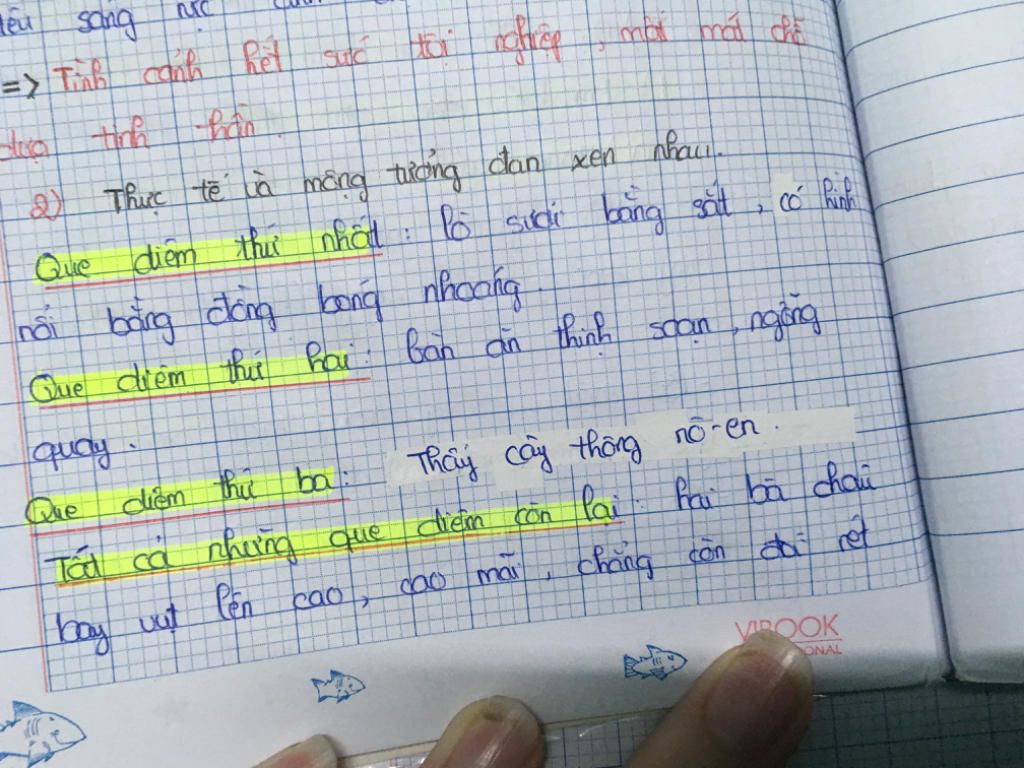 sáng rực
=> Tình cảnh hết sức tội nghiệp, mất mát chỗ
dựa tinh thần.
2) Thực tế và mộng tưởng đan xen nhau.
Que diêm thứ nhất: lò sưởi bằng sắt, có hình
nổi bằng đồng bóng nhoáng.
Que diêm thứ hai: bàn ăn thịnh soạn, ngỗng
quay.
Que diêm thứ ba: Thấy cây thông nô-en.
Tất cả những que diêm còn lại: hai bà cháu
bay vụt lên cao, cao mãi, chẳng còn đói rét
VIBOOK
ONAL